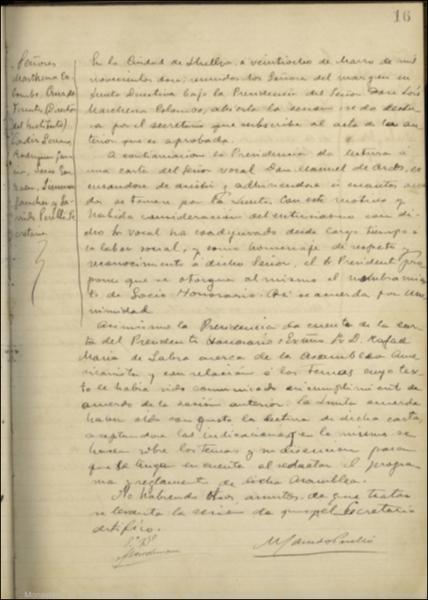 16
Señores
Marchena Co-
lombo, Oruro de
Fuentes (Director
del Instituto)
Garrido Perelló Se-
cretario
En la Ciudad de Huelva, a veintiocho de Marzo de mil
novecientos doce, reunidos los Señores del margen en
Junta Directiva bajo la Presidencia del Señor Don José
Marchena Colombo, abierta la sesión se da lectu-
ra por el secretario que subscribe al acta de la an-
terior que es aprobada.
A continuación la Presidencia da lectura a
una carta del Señor vocal Don Manuel de
cusandose de asistir y adhiriendose a cuantos acuer-
dos se tomen por la Junta. Con este motivo y
habida consideración del entusiasmo con que
dicho Sr vocal ha coadyuvado desde largo tiempo a
la labor social, y como homenaje de respeto y
reconocimiento a dicho Señor, el Sr President pro
pone que se otorgue al mismo el nombramien-
to de Socio Honorario. Asi se acuerda por una
nimidad
Asimismo la Presidencia da cuenta de la car
ta del Presidente Honorario Excmo Sr D. Rafael
Maria de Labra acerca de la Asamblea Ame
ricanista y con relación a los temas cuyo tex
to le habia sido comunicado en cumplimient de
acuerdo de la sesion anterior. La Junta acuerda
haber oido con gusto la lectura de dicha carta,
aceptandose las indicaciones q en la misma se
hacen sobre los temas y su discusion para
que se tenga en cuenta al redactar el progra
ma y reglamento de dicha Asamblea.
No habiendo otros asuntos de que tratar
se levanta la sesion de que yo el Secretario
certifico.
Vº Bº
Marchena
M Garrido Perelló